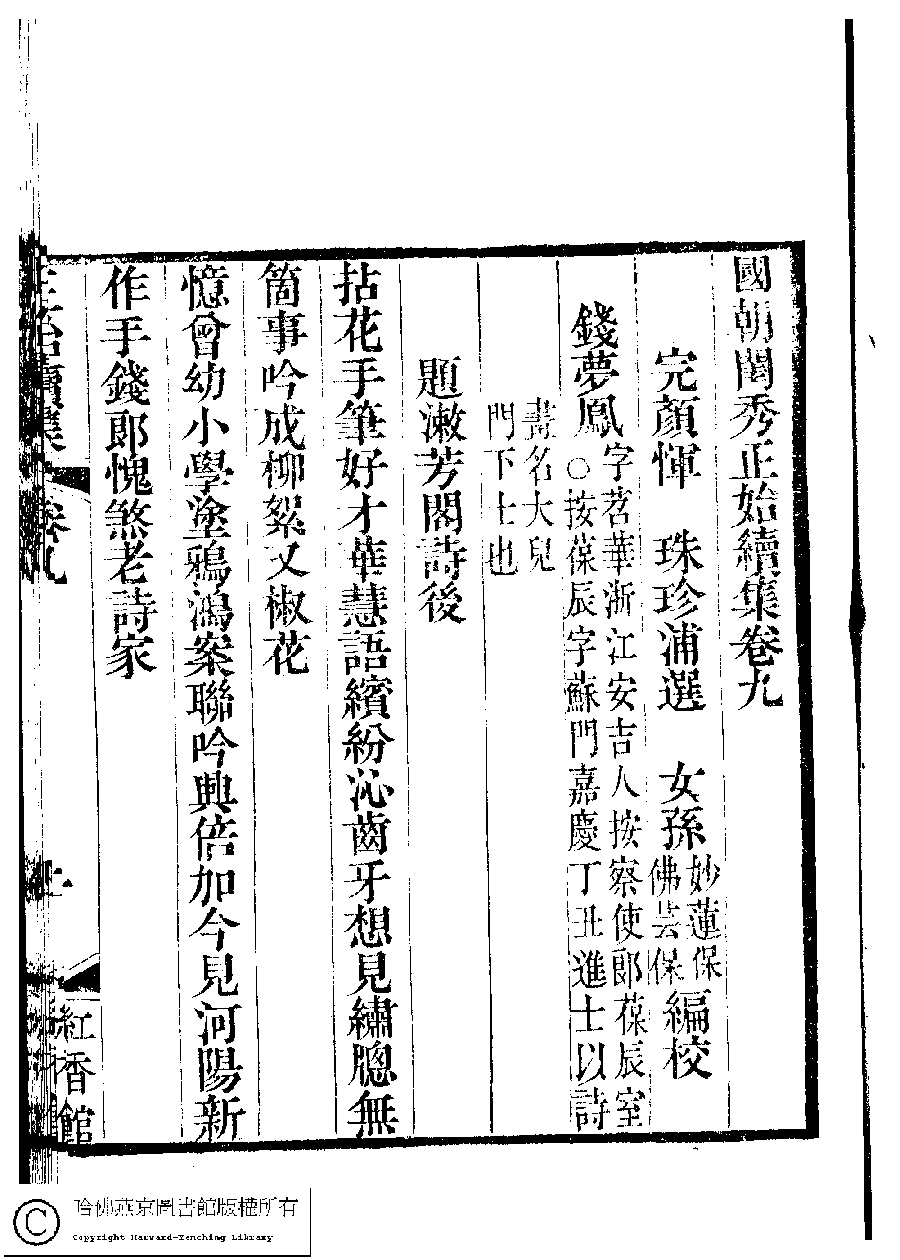 國朝閨秀正始續集卷九
完顏惲 珠珍浦選 女孫妙蓮保佛芸保編校
錢夢鳳字茗華浙江安吉人按察使郎葆辰室
○按葆辰字蘇門嘉慶丁丑進士以詩
畫名大兒
門下士也
題漱芳閣詩後
拈花手筆好才華慧語繽紛沁齒牙想見繡牕無
箇事吟成柳絮又椒花
憶曾幼小學塗鴉鴻案聯吟興倍加今見河陽新
作手錢郎愧煞老詩家
正始續集 卷九
上
紅香館
哈佛燕京圖書館版權所有
Copyright Harvard-Yenching Library